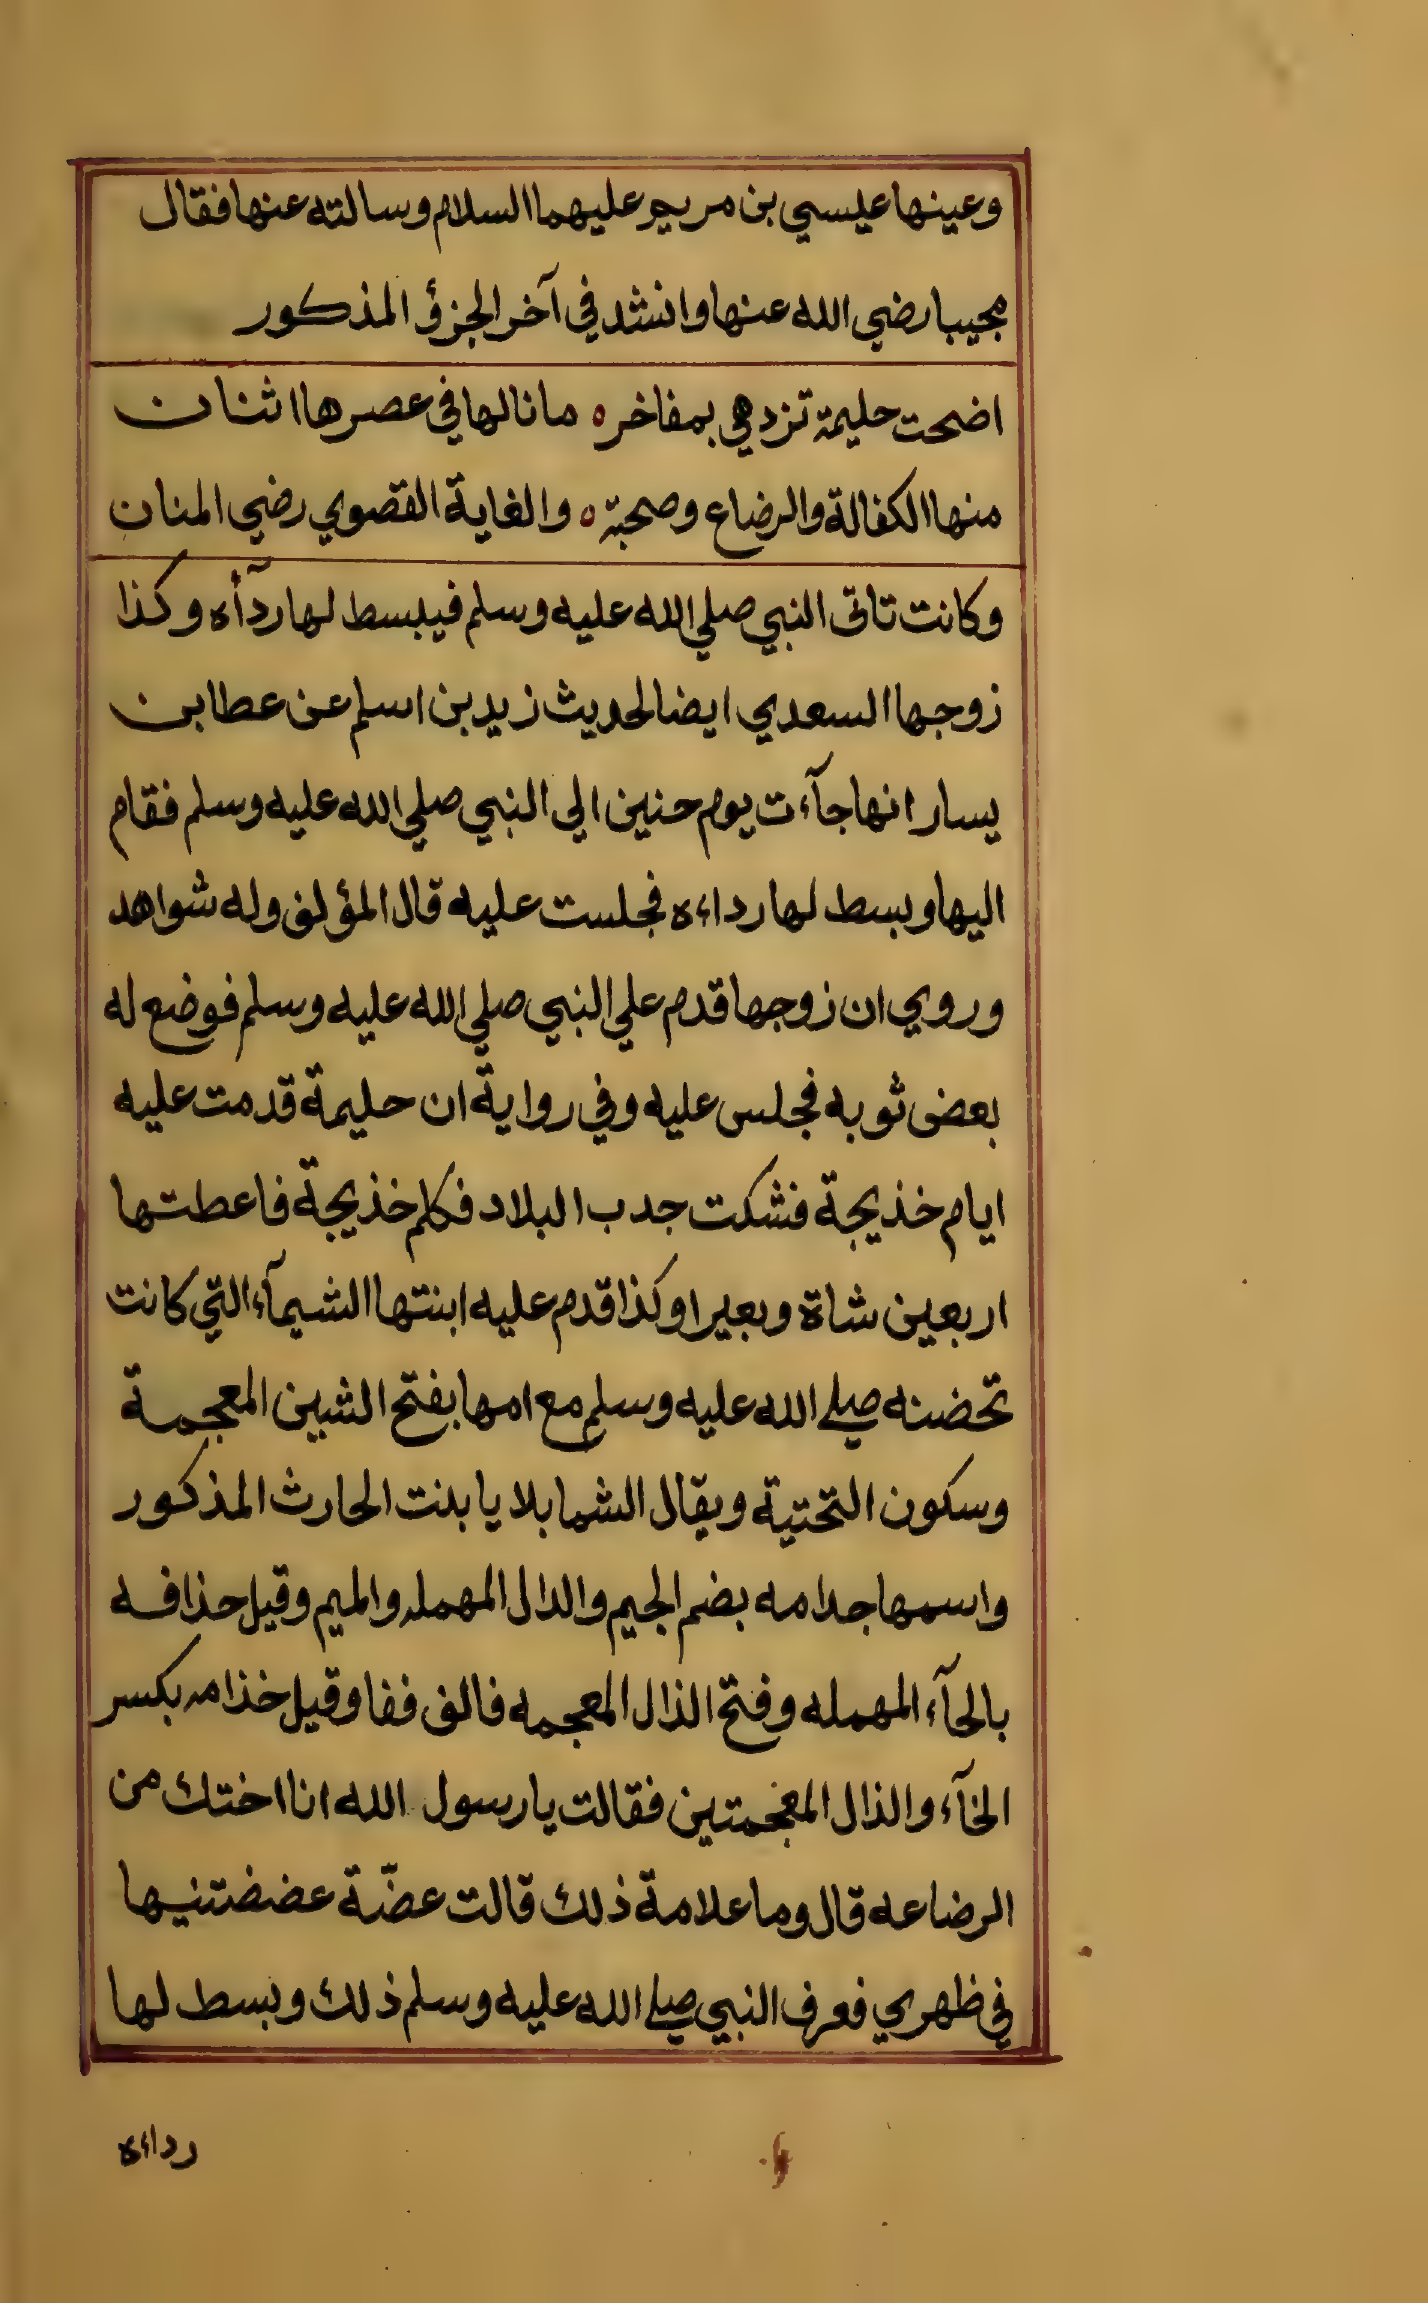 وعينها عيسي بن مريم عليهما السلام وسالته عنها فقال
مجيبا رضي الله عنها وانشد في آخر الجزؤ المذكور
اضحت حليمة تزدهي بمفاخر ه مانالها في عصرها اثنان
منها الكفالة والرضاع وصحبة ه والغاية القصوي رضي المنان
وكانت تاتى النبي صلي الله عليه وسلم فيبسط لها ردآأه وكذا
زوجها السعدي ايضا لحديث زيد بن اسلم عن عطا بن
يسار انها جآءت يوم حنين الي النبي صلي الله عليه وسلم فقام
اليها وبسط لها رداءه فجلست عليه قال المؤلف وله شواهد
وروي ان زوجها قدم علي النبي صلي الله عليه وسلم فوضع له
بعض ثوبه فجلس عليه وفي رواية ان حليمة قدمت عليه
ايام خذيجة فشكت جدب البلاد فكلم خذيجة فاعطتها
اربعين شاة وبعيرا وكذا قدم عليه ابنتها الشيمآء التي كانت
تحضنه صلي الله عليه وسلم مع امها بفتح الشين المعجمة
وسكون التحتية ويقال الشما بلا يا بنت الحارث المذكور
واسمها جدامه بضم الجيم والدال المهمله والميم وقيل حذافه
بالحآء المهمله وفتح الذال المعجمه فالف ففا وقيل خذامه بكسر
الخآء والذال المعجمتين فقالت يارسول الله انا اختك من
الرضاعه قال وما علامة ذلك قالت عضّة عضضتنيها
في ظهري فعرف النبي صلي الله عليه وسلم ذلك وبسط لها
رداءه